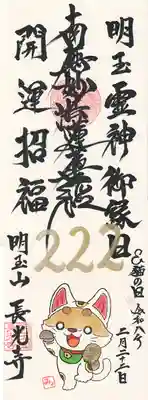 明玉靈神御縁日
南無妙法蓮華経
開運招福
222
猫の日 令和八年
二月二十二日
明玉山 長光寺